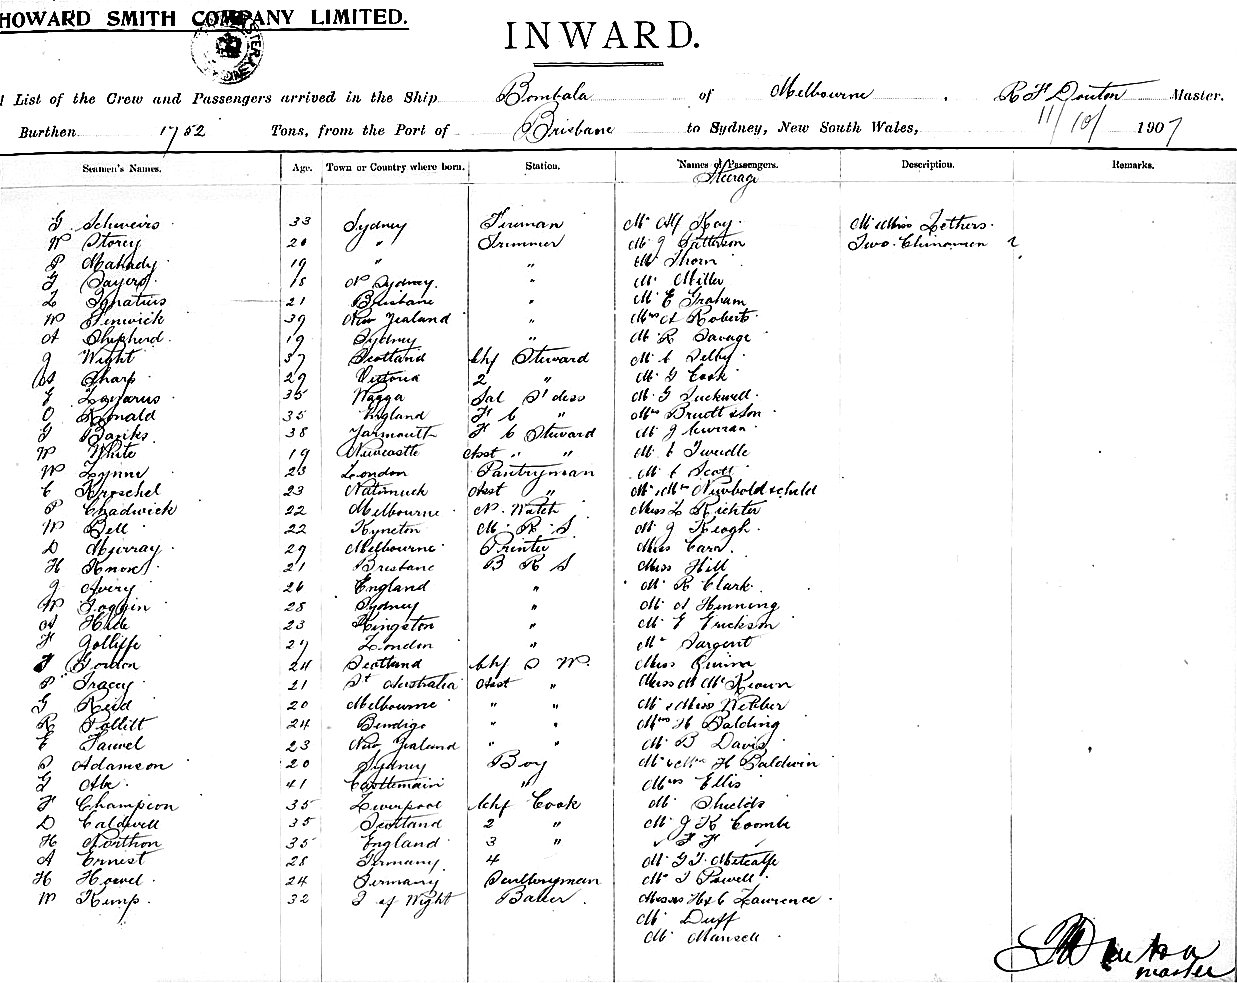 HOWARD SMITH COMPANY LIMITED.
INWARD.
List of the Crew and Passengers arrived in the Ship Bombala of Melbourne, R F Douton Master.
Burthen 1752 Tons, from the Port of Brisbane to Sydney, New South Wales, 11/10/ 1907
Seamen's Names. Age. Town or Country where born. Station. Names of Passengers. Description. Remarks.
Steerage
G 33 Sydney Fireman Mr Alf Kay Mr & Miss Lethers
W Storey 20 " Trimmer Mr J Patterson Two Chinamen
P Mahady 19 " " Mr Thorn
G Sayers 18 N Sydney " Mr Miller
L Ignatius 21 Brisbane " Mr E Graham
W Fenwick 39 New Zealand " Mrs A Roberts
A Shepherd 19 Sydney " Mr R Savage
J Wight 37 Scotland Chf Steward Mr C Selby
A Sharp 29 Victoria 2 " Mr G Cook
E Lazarus 35 Wagga Sal St dess Mr G Tuckwell
O Ronald 35 England F C " Mrs & son
G Banks 38 Yarmouth F C Steward Mr J Curran
W White 19 Newcastle Asst " " Mr C Tweedle
W Lynne 23 London Pantryman Mr C Scott
C Kroschel 23 Natimuck Asst " Mr & Mrs Newbold & child
P Chadwick 22 Melbourne N. Watch Miss L Richter
W Bell 22 Kyneton M. R. S. Mr J Keogh
D Murray 29 Melbourne Printer Miss Carr
H Knox 21 Brisbane B R S Miss Hill
J Avery 26 England " Mr R Clark
W Goggin 28 Sydney " Mr A Henning
A Hill 23 Kingston " Mr E Erickson
F Jolliffe 27 London " Mr Sargent
J Gordon 24 Scotland Chf P M. Miss Quinn
P Tracey 21 Sth Australia Asst " Miss M McKeown
G Reid 20 Melbourne " " Mr & Miss Webber
R Pollitt 24 Bendigo " " Mrs H Balding
E Fauvel 23 New Zealand " " Mr B Davis
S Adamson 20 Sydney Boy Mr & Mrs H Baldwin
G 41 Castlemain " Miss Ellis
F Champion 35 Liverpool Chf Cook Mr Shields
D Caldwell 35 Scotland 2 " Mr J K Coomb
H Northon 35 England 3 " " F F "
A Ernest 28 Germany 4 Mr G T Metcalfe
H Howel 24 Germany Sculleryman Mr T Powell
W Kemp 32 I of Wight Baker Messrs H & C Lawrence
Mr Duff
Mr Mansell
master